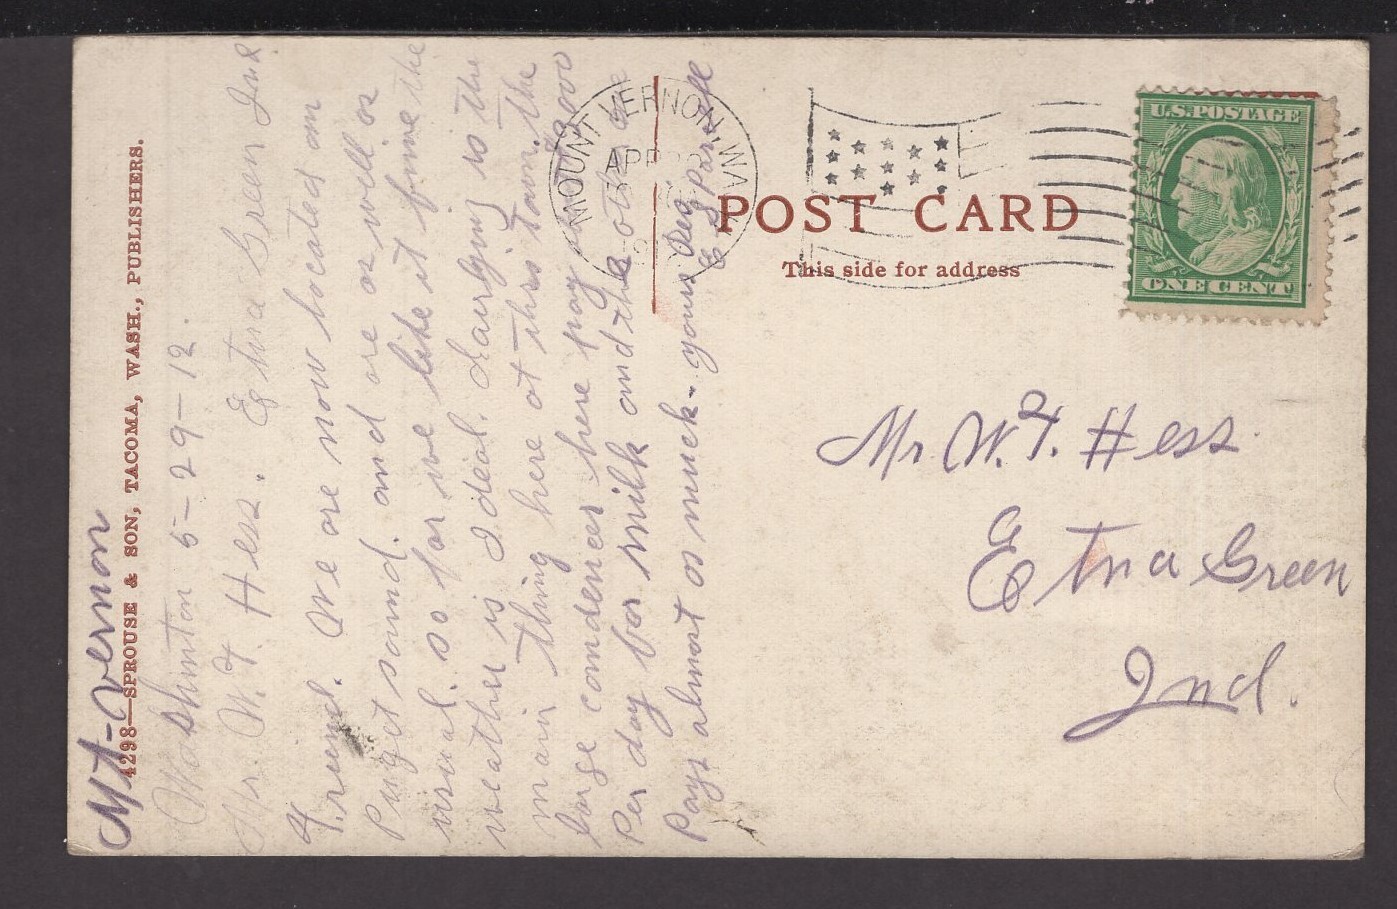 Mt-Vernon
4298—SPROUSE & SON, TACOMA, WASH., PUBLISHERS.
Washinton 5-29-12.
Mr. W. F. Hess. Etna Green Ind
Freind. We are now located on
Puget sound. and are as well as
usual. so far we like it fine the
weather is Ideal. dairying is the
main thing here at this town. the
large condencer here pay
Per day for milk and the other one
Pays almost as much- yours
MOUNT VERNON, WASH.
APR
POST CARD
This side for address
U.S. POSTAGE
ONE CENT
Mr W. F. Hess
Etna Green
Ind.